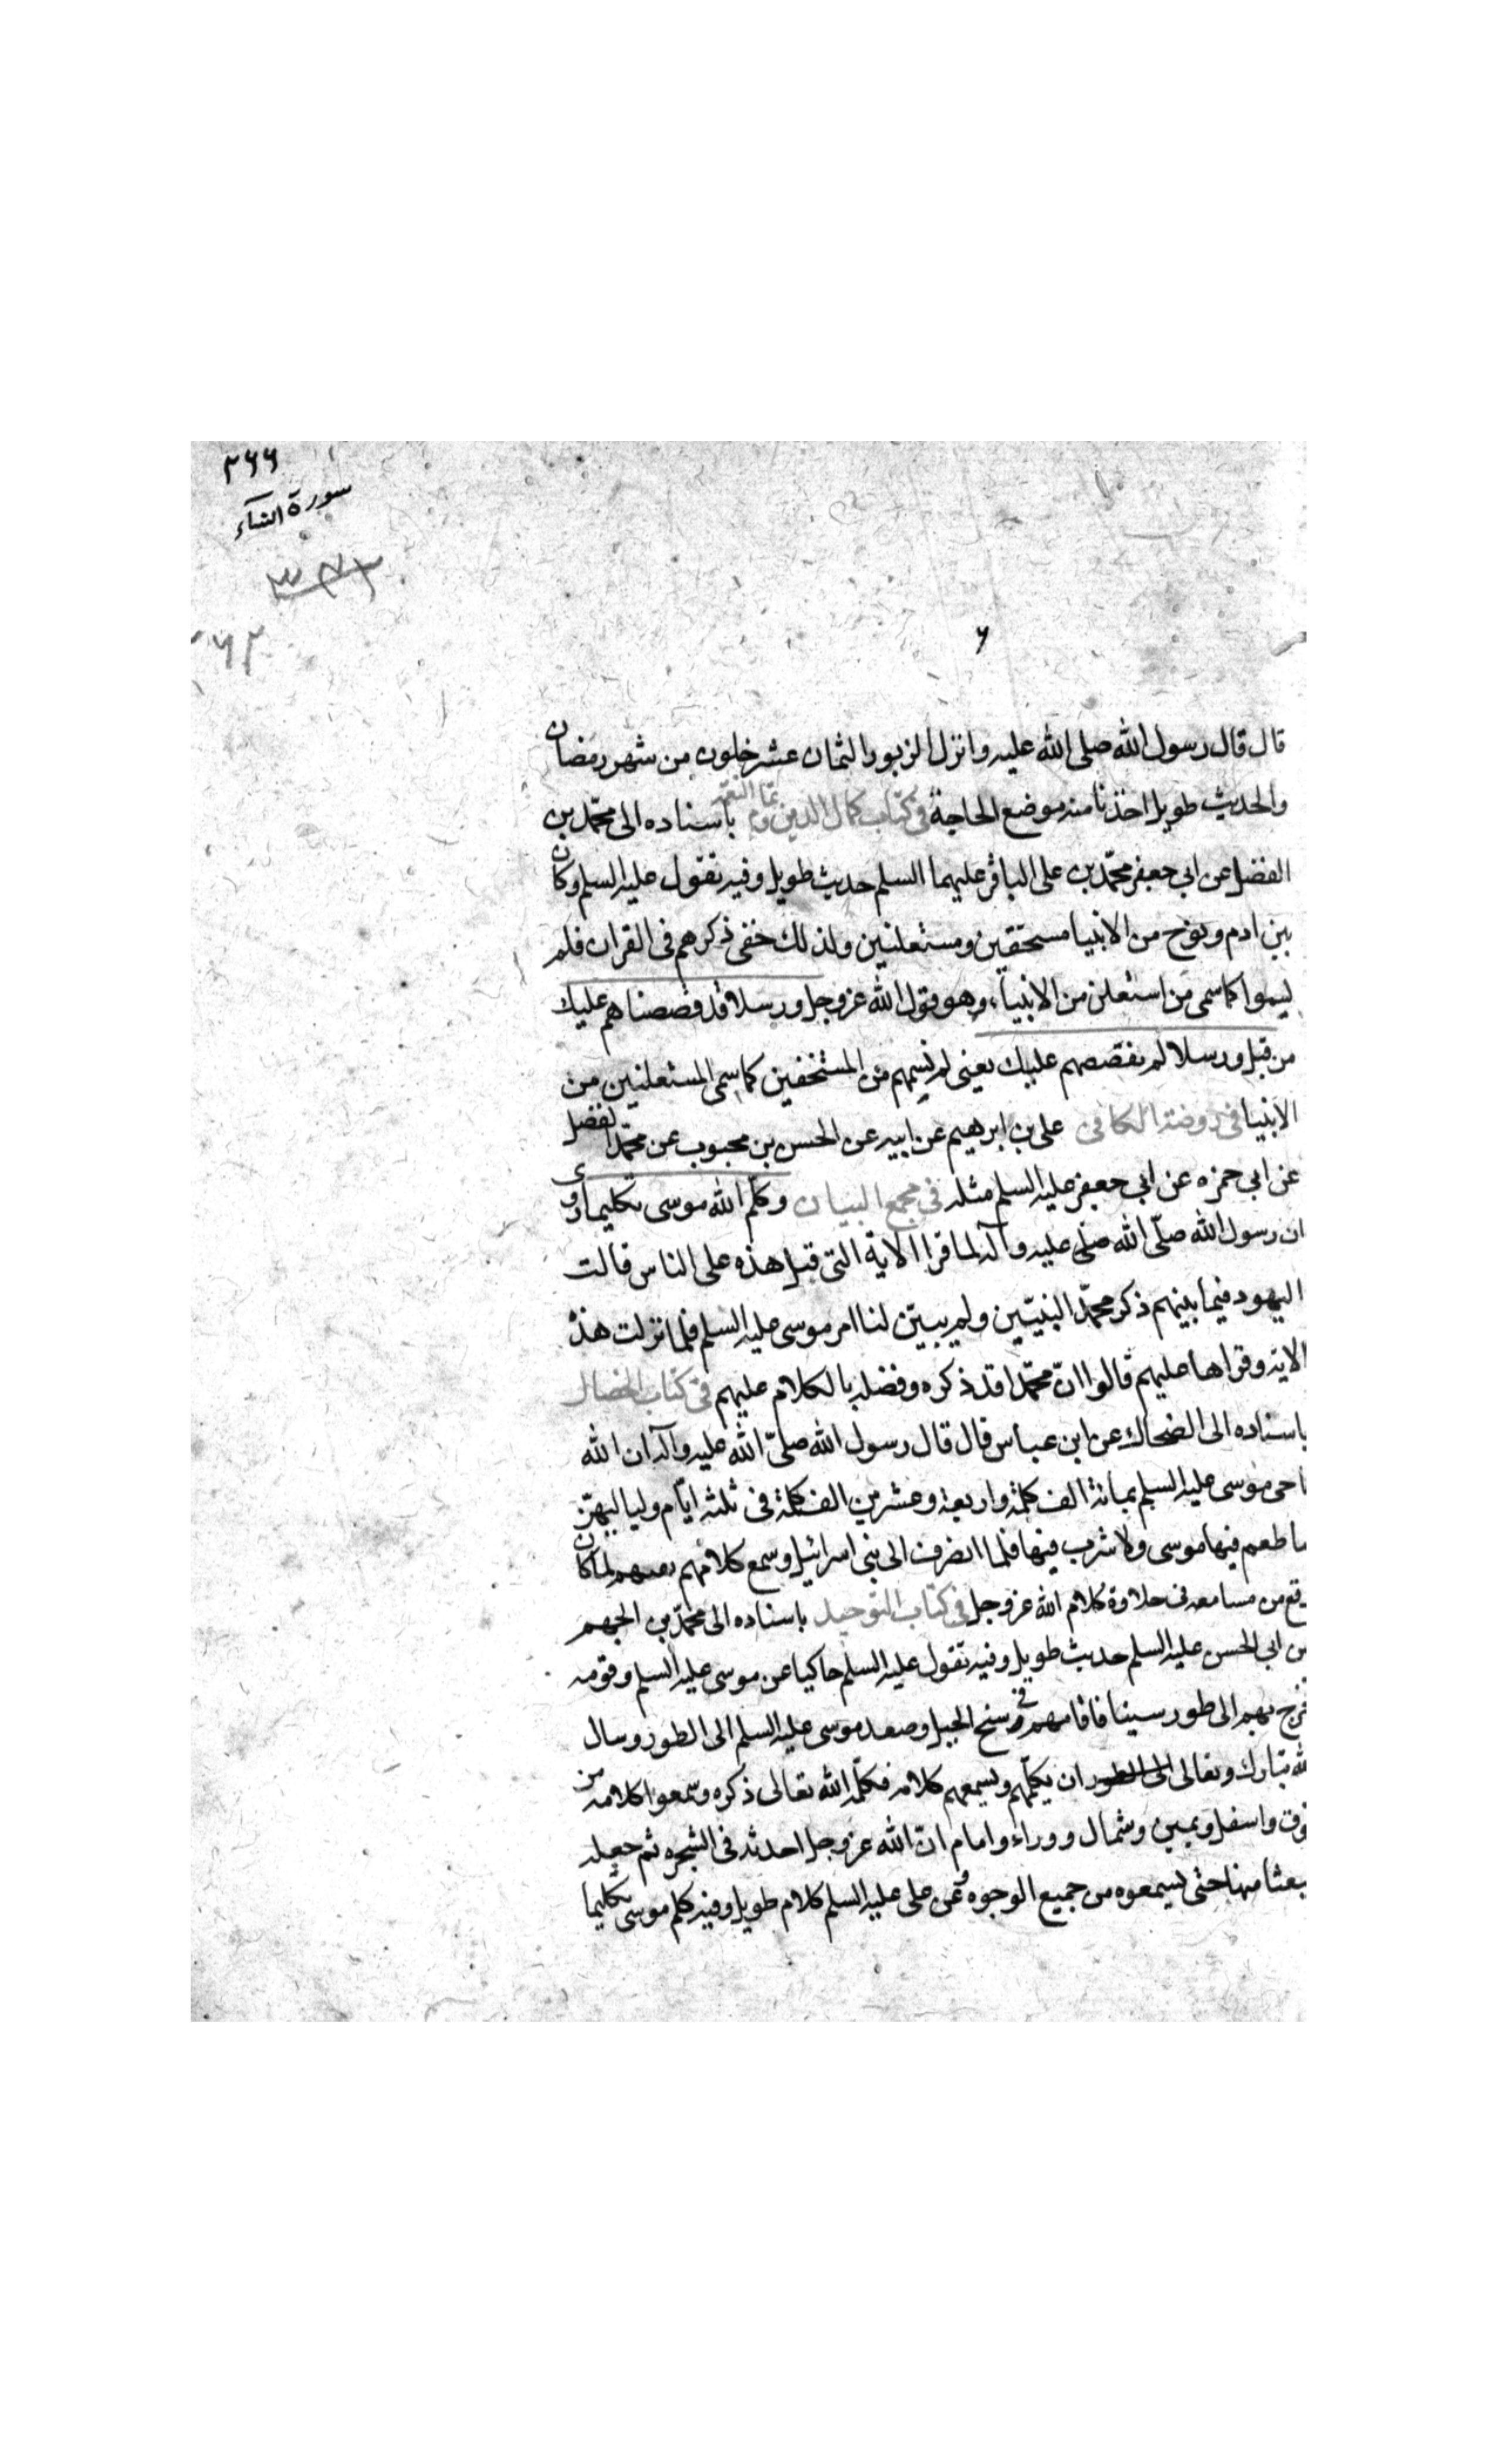 ۲۶۶
سورة النساء
۲۶۲
۶
قال قال رسول الله صلى الله عليه وانزل الزبور لثمان عشر خلون من شهر رمضان
والحديث طويل اخذنا منه موضع الحاجة فى كتاب كمال الدين وتمام النعمة باسناده الى محمّد بن
الفضل عن ابى جعفر محمّد بن على الباقر عليهما السلم حديث طويل وفيه يقول عليه السلم وكان
بين ادم ونوح من الانبيا مستخفين ومستعلنين ولذلك خفى ذكرهم فى القران فلم
يسموا كما سمى من استعلن من الانبيآء وهو قول الله عز وجل ورسلا قد قصصناهم عليك
من قبل ورسلا لم نقصصهم عليك يعنى لم يسمهم من المستخفين كما سمى المستعلنين من
الانبيا فى روضة الكافى على بن ابرهيم عن ابيه عن الحسن بن محبوب عن محمّد الفضل
عن ابى حمزه عن ابى جعفر عليه السلم مثله فى مجمع البيان وكلّم الله موسى تكليما وروى
ان رسول الله صلّى الله صلى عليه وآله لما قرا الاية التى قبل هذه على الناس قالت
اليهود فيما بينهم ذكر محمّد النبيّين ولم يبيّن لنا امر موسى عليه السلم فلما نزلت هذه
الاية وقراها عليهم قالوا انّ محمّدا قد ذكره وفضله بالكلام عليهم فى كتاب الخصال
باسناده الى الضحاك عن ابن عباس قال قال رسول الله صلّى الله عليه وآله ان الله
ناجى موسى عليه السلم بمائة الف كلمة واربعة وعشرين الف كلمة فى ثلثه ايّام ولياليهنّ
ما طعم فيها موسى ولا شرب فيها فلما انصرف الى بنى اسرائيل وسمع كلامهم لما كان
وقع من مسامعه فى حلاوة كلام الله عز وجل فى كتاب التوحيد باسناده الى محمّد بن الجهم
عن ابى الحسن عليه السلم حديث طويل وفيه يقول عليه السلم حاكيا عن موسى عليه السلم وقومه
فخرج بهم الى طور سينا فاقامهم فى سفح الجبل وصعد موسى عليه السلم الى الطور وسال
الله تبارك وتعالى الى الطور ان يكلّمهم ويسمعهم كلامه فكلّمه الله تعالى ذكره وسمعوا كلامه من
فوق واسفل ويمين وشمال ووراء وامام انّ الله عز وجل احدثه فى الشجره ثم جعله
منبعثا منها حتى يسمعوه من جميع الوجوه وعن على عليه السلم كلام طويل وفيه كلم موسى تكليما